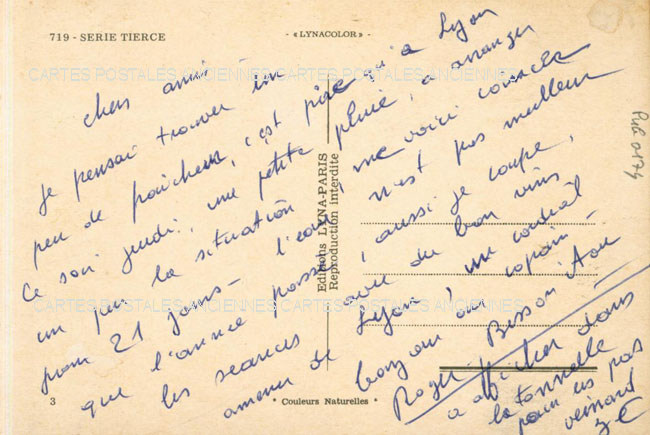 719 - SERIE TIERCE
- « LYNACOLOR » -
CARTES POSTALES ANCIENNES CARTES POSTALES ANCIENNES
chers amis
je pensai trouver un
peu de fraicheur, c'est pire qu'a Lyon
Ce soir jeudi, une petite pluie, a arranger
un peu la situation, me voici coincer
pour 21 jours - l'eau n'est pas meilleur
que l'année passée, aussi je coupe,
les seances avec du bon vin,
amener de Lyon, un contrat
bonjour aux copain -
Roger Bisson
a afficher dans
la tonnelle
pour les pas
veinard
Editions LYNA-PARIS
Reproduction interdite
CARTES POSTALES ANCIENNES CARTES POSTALES ANCIENNES
3
* Couleurs Naturelles *